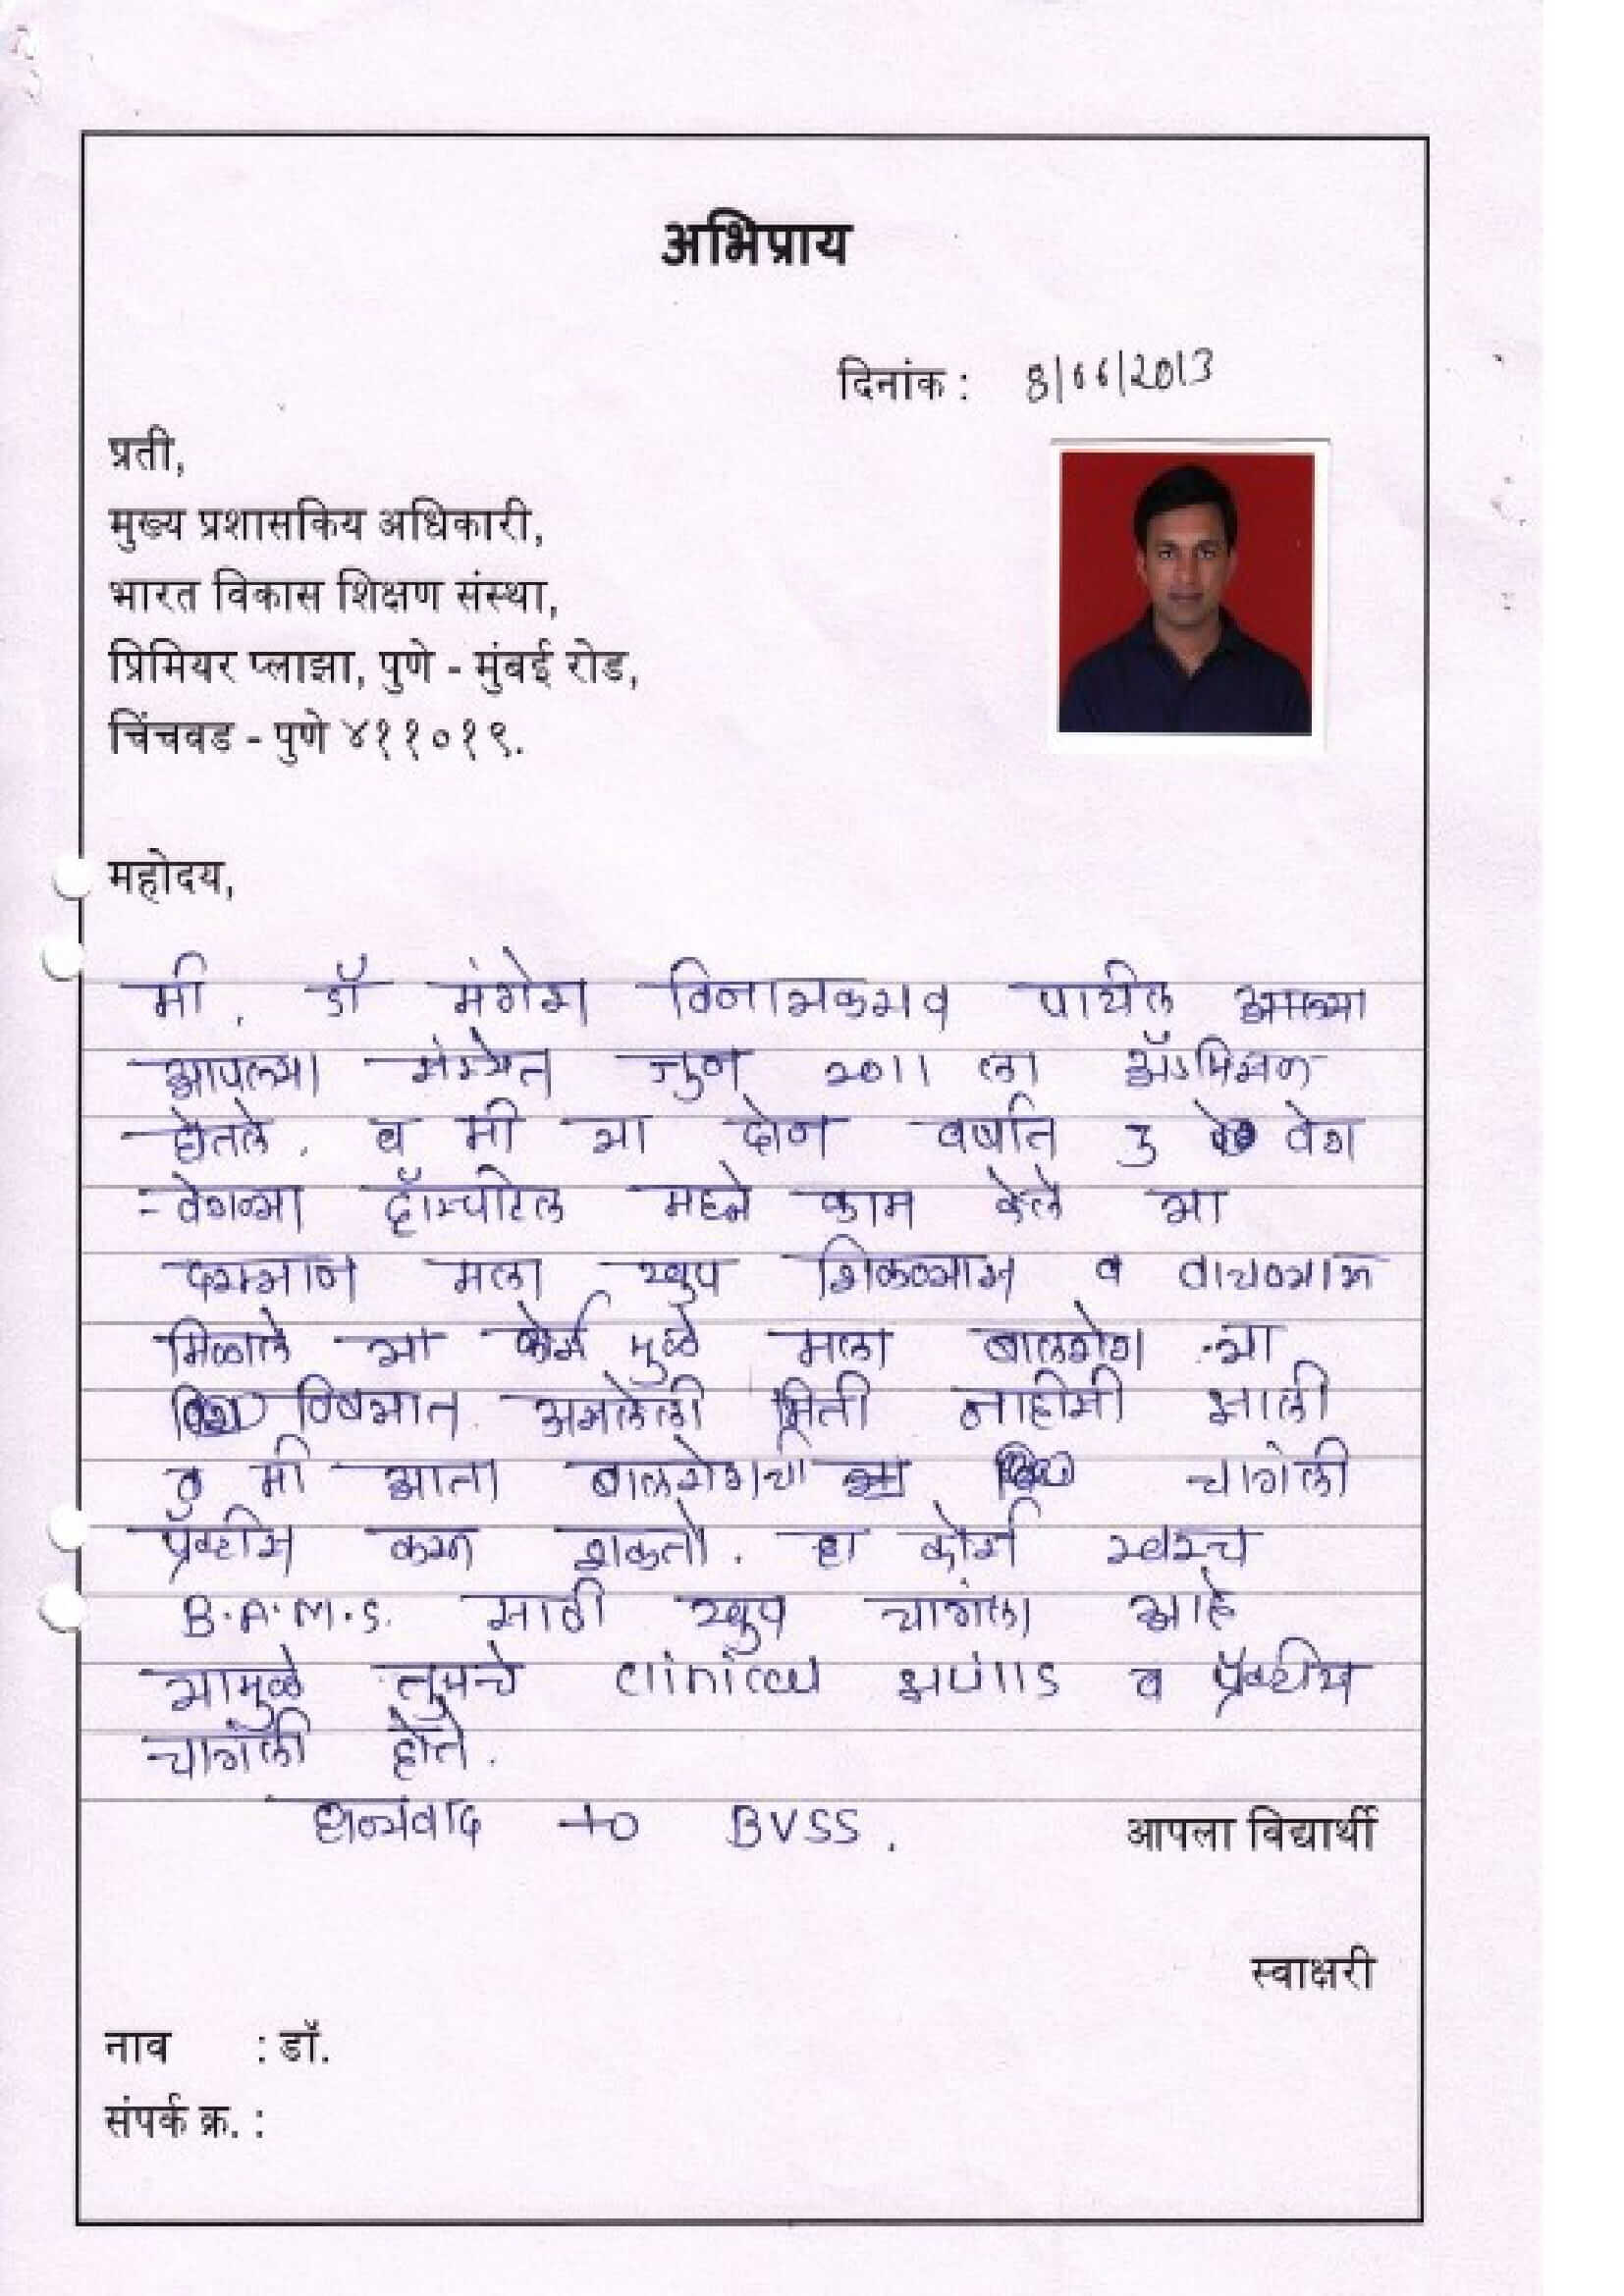 अभिप्राय
दिनांक : 8/06/2013
प्रती,
मुख्य प्रशासकिय अधिकारी,
भारत विकास शिक्षण संस्था,
प्रिमियर प्लाझा, पुणे - मुंबई रोड,
चिंचवड - पुणे ४११०१९.
महोदय,
मी, डॉ मंगेश विनायकराव पाटील
आपल्या संस्थेत जुन 2011 ला ॲडमिशन
घेतले. व मी या दोन वर्षात 3 वेग
-वेगळ्या हॉस्पीटल मध्ये काम केले या
दरम्यान मला खुप शिकण्यास व वाचण्यास
मिळाले या कोर्स मुळे मला बालरोग -या
विषयात असलेली भिती नाहीसी झाली
व मी आता बालरोगाची चागंली
प्रॅक्टीस करू शकतो. हा कोर्स खरच
B.A.M.S. साठी खुप चांगला आहे
यामुळे तुमचे clinical व प्रॅक्टीस
चागंली होते.
धन्यवाद to BVSS.
आपला विद्यार्थी
स्वाक्षरी
नाव : डॉ.
संपर्क क्र. :